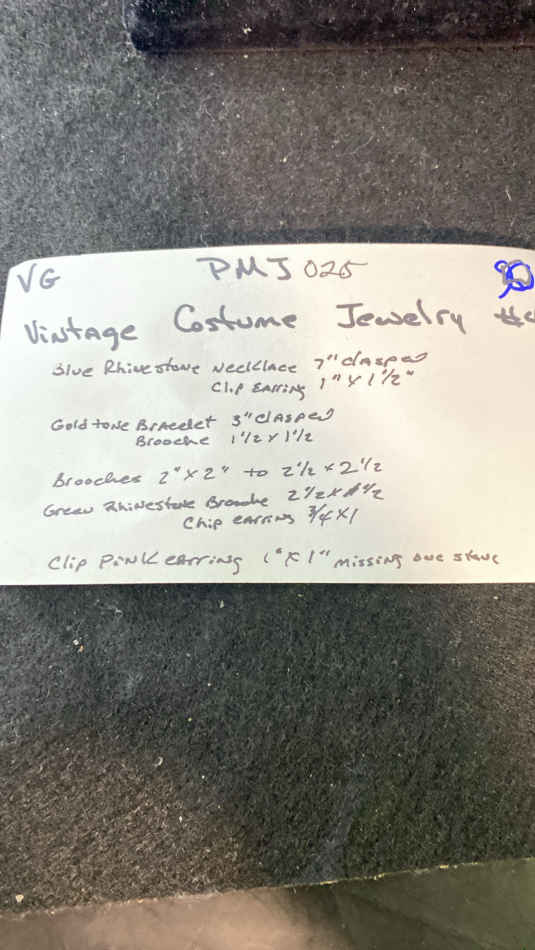 VG PMJ 025
Vintage Costume Jewelry
Blue Rhinestone Necklace 7" clasped
Clip Earring 1" x 1 1/2"
Gold tone Bracelet 3" clasped
Brooche 1 1/2 x 1 1/2
Brooches 2" x 2" to 2 1/2 x 2 1/2
Green Rhinestone Brooche 2 1/2 x
Chip earring 3/4 x 1
Clip Pink earring 1" x 1" missing one stone